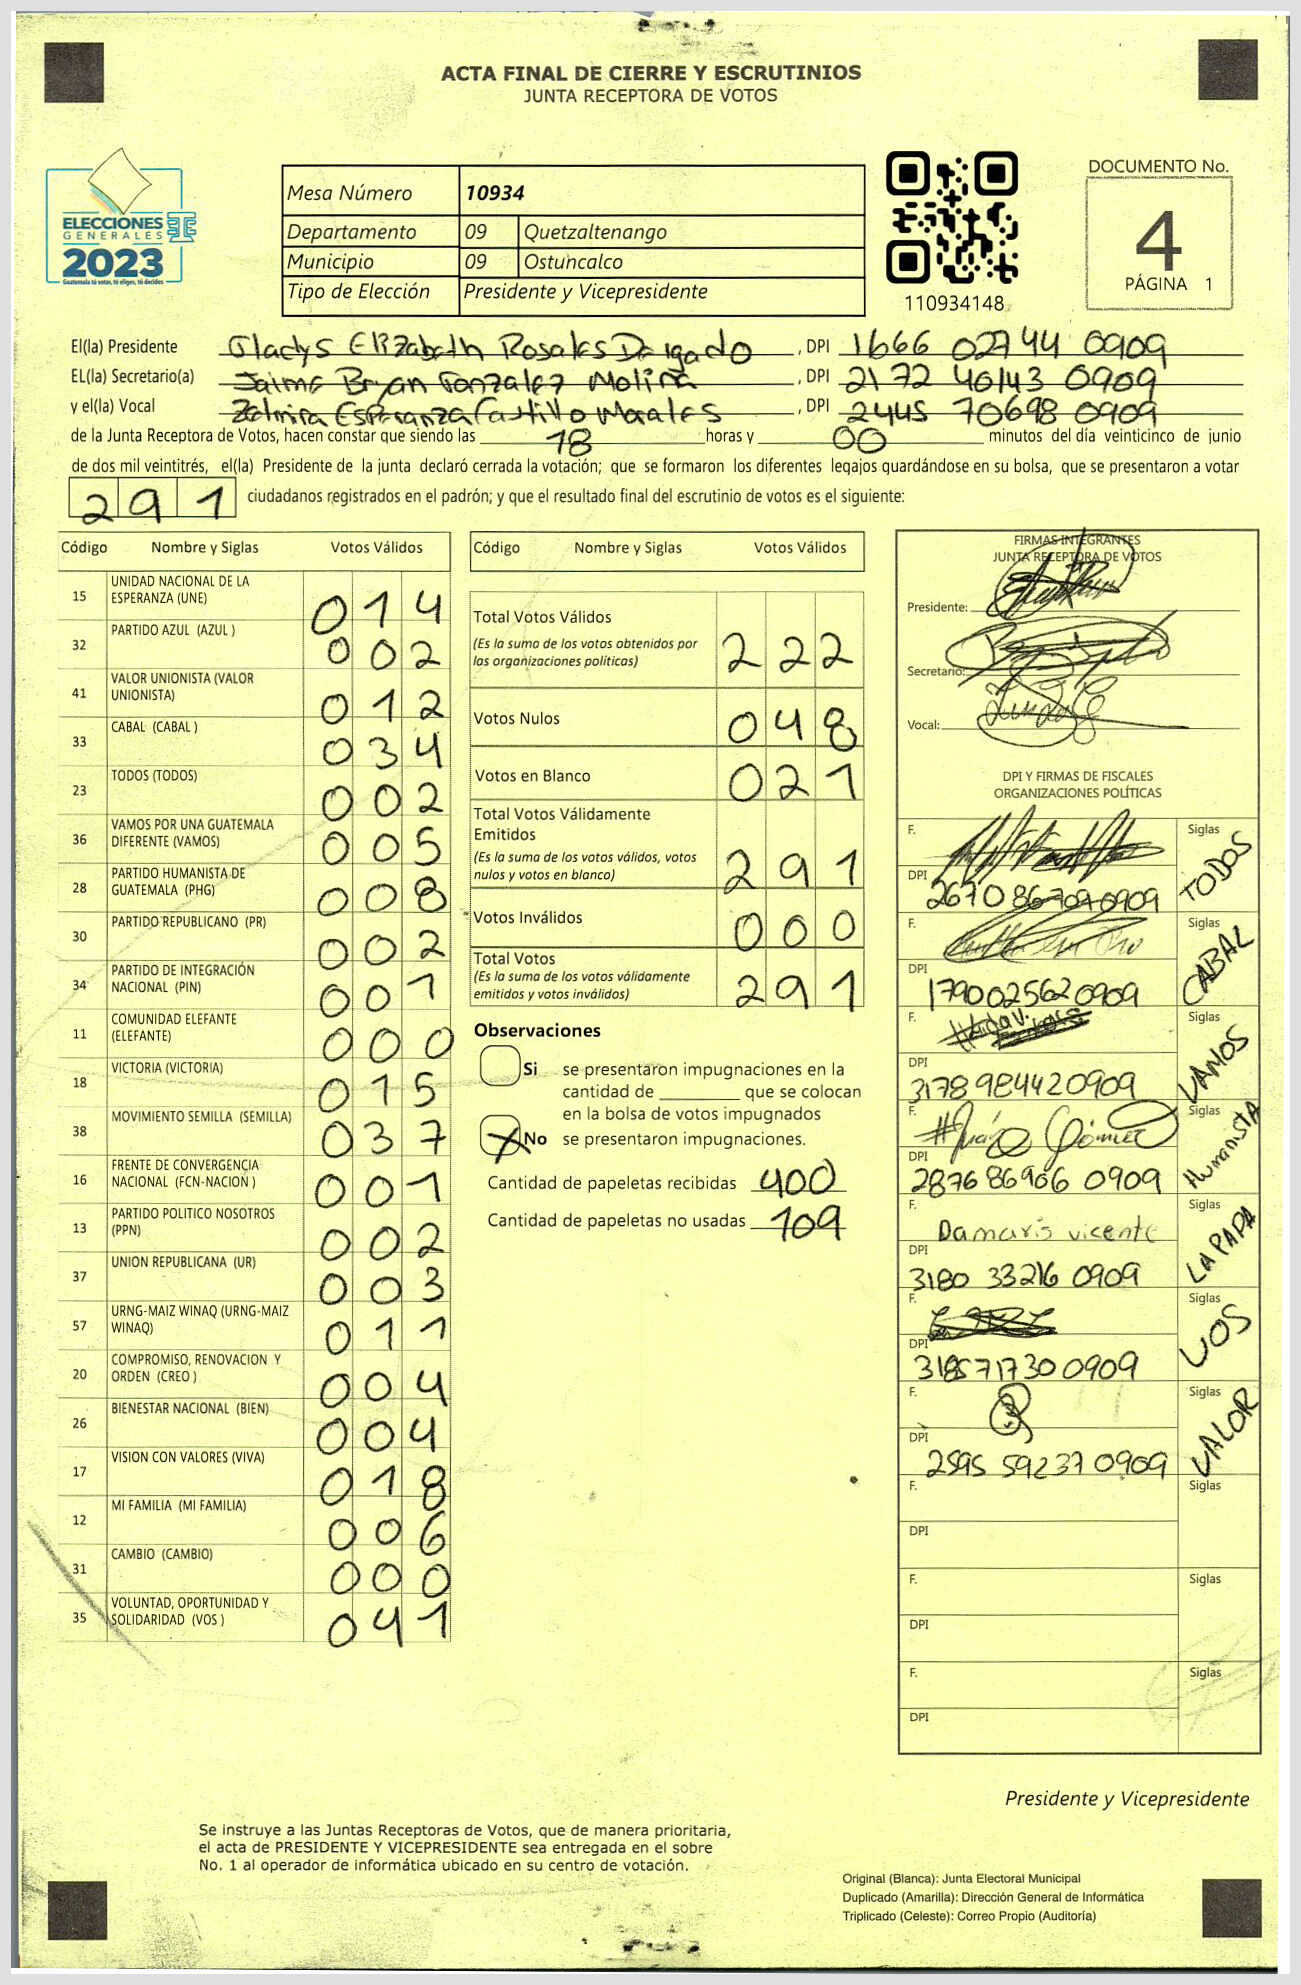 ACTA FINAL DE CIERRE Y ESCRUTINIOS
JUNTA RECEPTORA DE VOTOS
ELECCIONES
GENERALES
2023
Guatemala tú votas, tú eliges, tú decides
Mesa Número 10934
Departamento 09 Quetzaltenango
Municipio 09 Ostuncalco
Tipo de Elección Presidente y Vicepresidente
110934148
DOCUMENTO No.
4
PÁGINA 1
El(la) Presidente Gladys Elizabeth Rosales Delgado, DPI 1666 02744 0909
EL(la) Secretario(a) Jaime Bryan Gonzalez Molina, DPI 2172 46143 0909
y el(la) Vocal Zelmira Esperanza Castillo Morales, DPI 2445 70698 0909
de la Junta Receptora de Votos, hacen constar que siendo las 18 horas y 00 minutos del día veinticinco de junio
de dos mil veintitrés, el(la) Presidente de la junta declaró cerrada la votación; que se formaron los diferentes legajos guardándose en su bolsa, que se presentaron a votar
291 ciudadanos registrados en el padrón; y que el resultado final del escrutinio de votos es el siguiente:
Código Nombre y Siglas Votos Válidos
15 UNIDAD NACIONAL DE LA ESPERANZA (UNE) 014
32 PARTIDO AZUL (AZUL ) 002
41 VALOR UNIONISTA (VALOR UNIONISTA) 012
33 CABAL (CABAL ) 034
23 TODOS (TODOS) 002
36 VAMOS POR UNA GUATEMALA DIFERENTE (VAMOS) 005
28 PARTIDO HUMANISTA DE GUATEMALA (PHG) 008
30 PARTIDO REPUBLICANO (PR) 002
34 PARTIDO DE INTEGRACIÓN NACIONAL (PIN) 001
11 COMUNIDAD ELEFANTE (ELEFANTE) 000
18 VICTORIA (VICTORIA) 015
38 MOVIMIENTO SEMILLA (SEMILLA) 037
16 FRENTE DE CONVERGENCIA NACIONAL (FCN-NACION ) 001
13 PARTIDO POLITICO NOSOTROS (PPN) 002
37 UNION REPUBLICANA (UR) 003
57 URNG-MAIZ WINAQ (URNG-MAIZ WINAQ) 011
20 COMPROMISO, RENOVACION Y ORDEN (CREO ) 004
26 BIENESTAR NACIONAL (BIEN) 004
17 VISION CON VALORES (VIVA) 018
12 MI FAMILIA (MI FAMILIA) 006
31 CAMBIO (CAMBIO) 000
35 VOLUNTAD, OPORTUNIDAD Y SOLIDARIDAD (VOS ) 041
Código Nombre y Siglas Votos Válidos
Total Votos Válidos 222
(Es la suma de los votos obtenidos por
las organizaciones políticas)
Votos Nulos 048
Votos en Blanco 021
Total Votos Válidamente
Emitidos 291
(Es la suma de los votos válidos, votos
nulos y votos en blanco)
Votos Inválidos 000
Total Votos 291
(Es la suma de los votos válidamente
emitidos y votos inválidos)
Observaciones
Si se presentaron impugnaciones en la
cantidad de ________ que se colocan
en la bolsa de votos impugnados
X No se presentaron impugnaciones.
Cantidad de papeletas recibidas 400
Cantidad de papeletas no usadas 109
FIRMAS INTEGRANTES
JUNTA RECEPTORA DE VOTOS
Presidente:
Secretario:
Vocal:
DPI Y FIRMAS DE FISCALES
ORGANIZACIONES POLÍTICAS
F. Siglas TODOS
DPI 2670 86709 0909
F. Siglas CABAL
DPI 1790 02562 0909
F. Siglas VAMOS
DPI 3178 98442 0909
F. Gómez Siglas Humanista
DPI 2876 86966 0909
F. Damaris vicente Siglas LA PAPA
DPI 3180 33216 0909
F. Siglas VOS
DPI 3185 71730 0909
F. Siglas VALOR
DPI 2595 59237 0909
F. Siglas
DPI
F. Siglas
DPI
F. Siglas
DPI
Presidente y Vicepresidente
Se instruye a las Juntas Receptoras de Votos, que de manera prioritaria,
el acta de PRESIDENTE Y VICEPRESIDENTE sea entregada en el sobre
No. 1 al operador de informática ubicado en su centro de votación.
Original (Blanca): Junta Electoral Municipal
Duplicado (Amarilla): Dirección General de Informática
Triplicado (Celeste): Correo Propio (Auditoría)